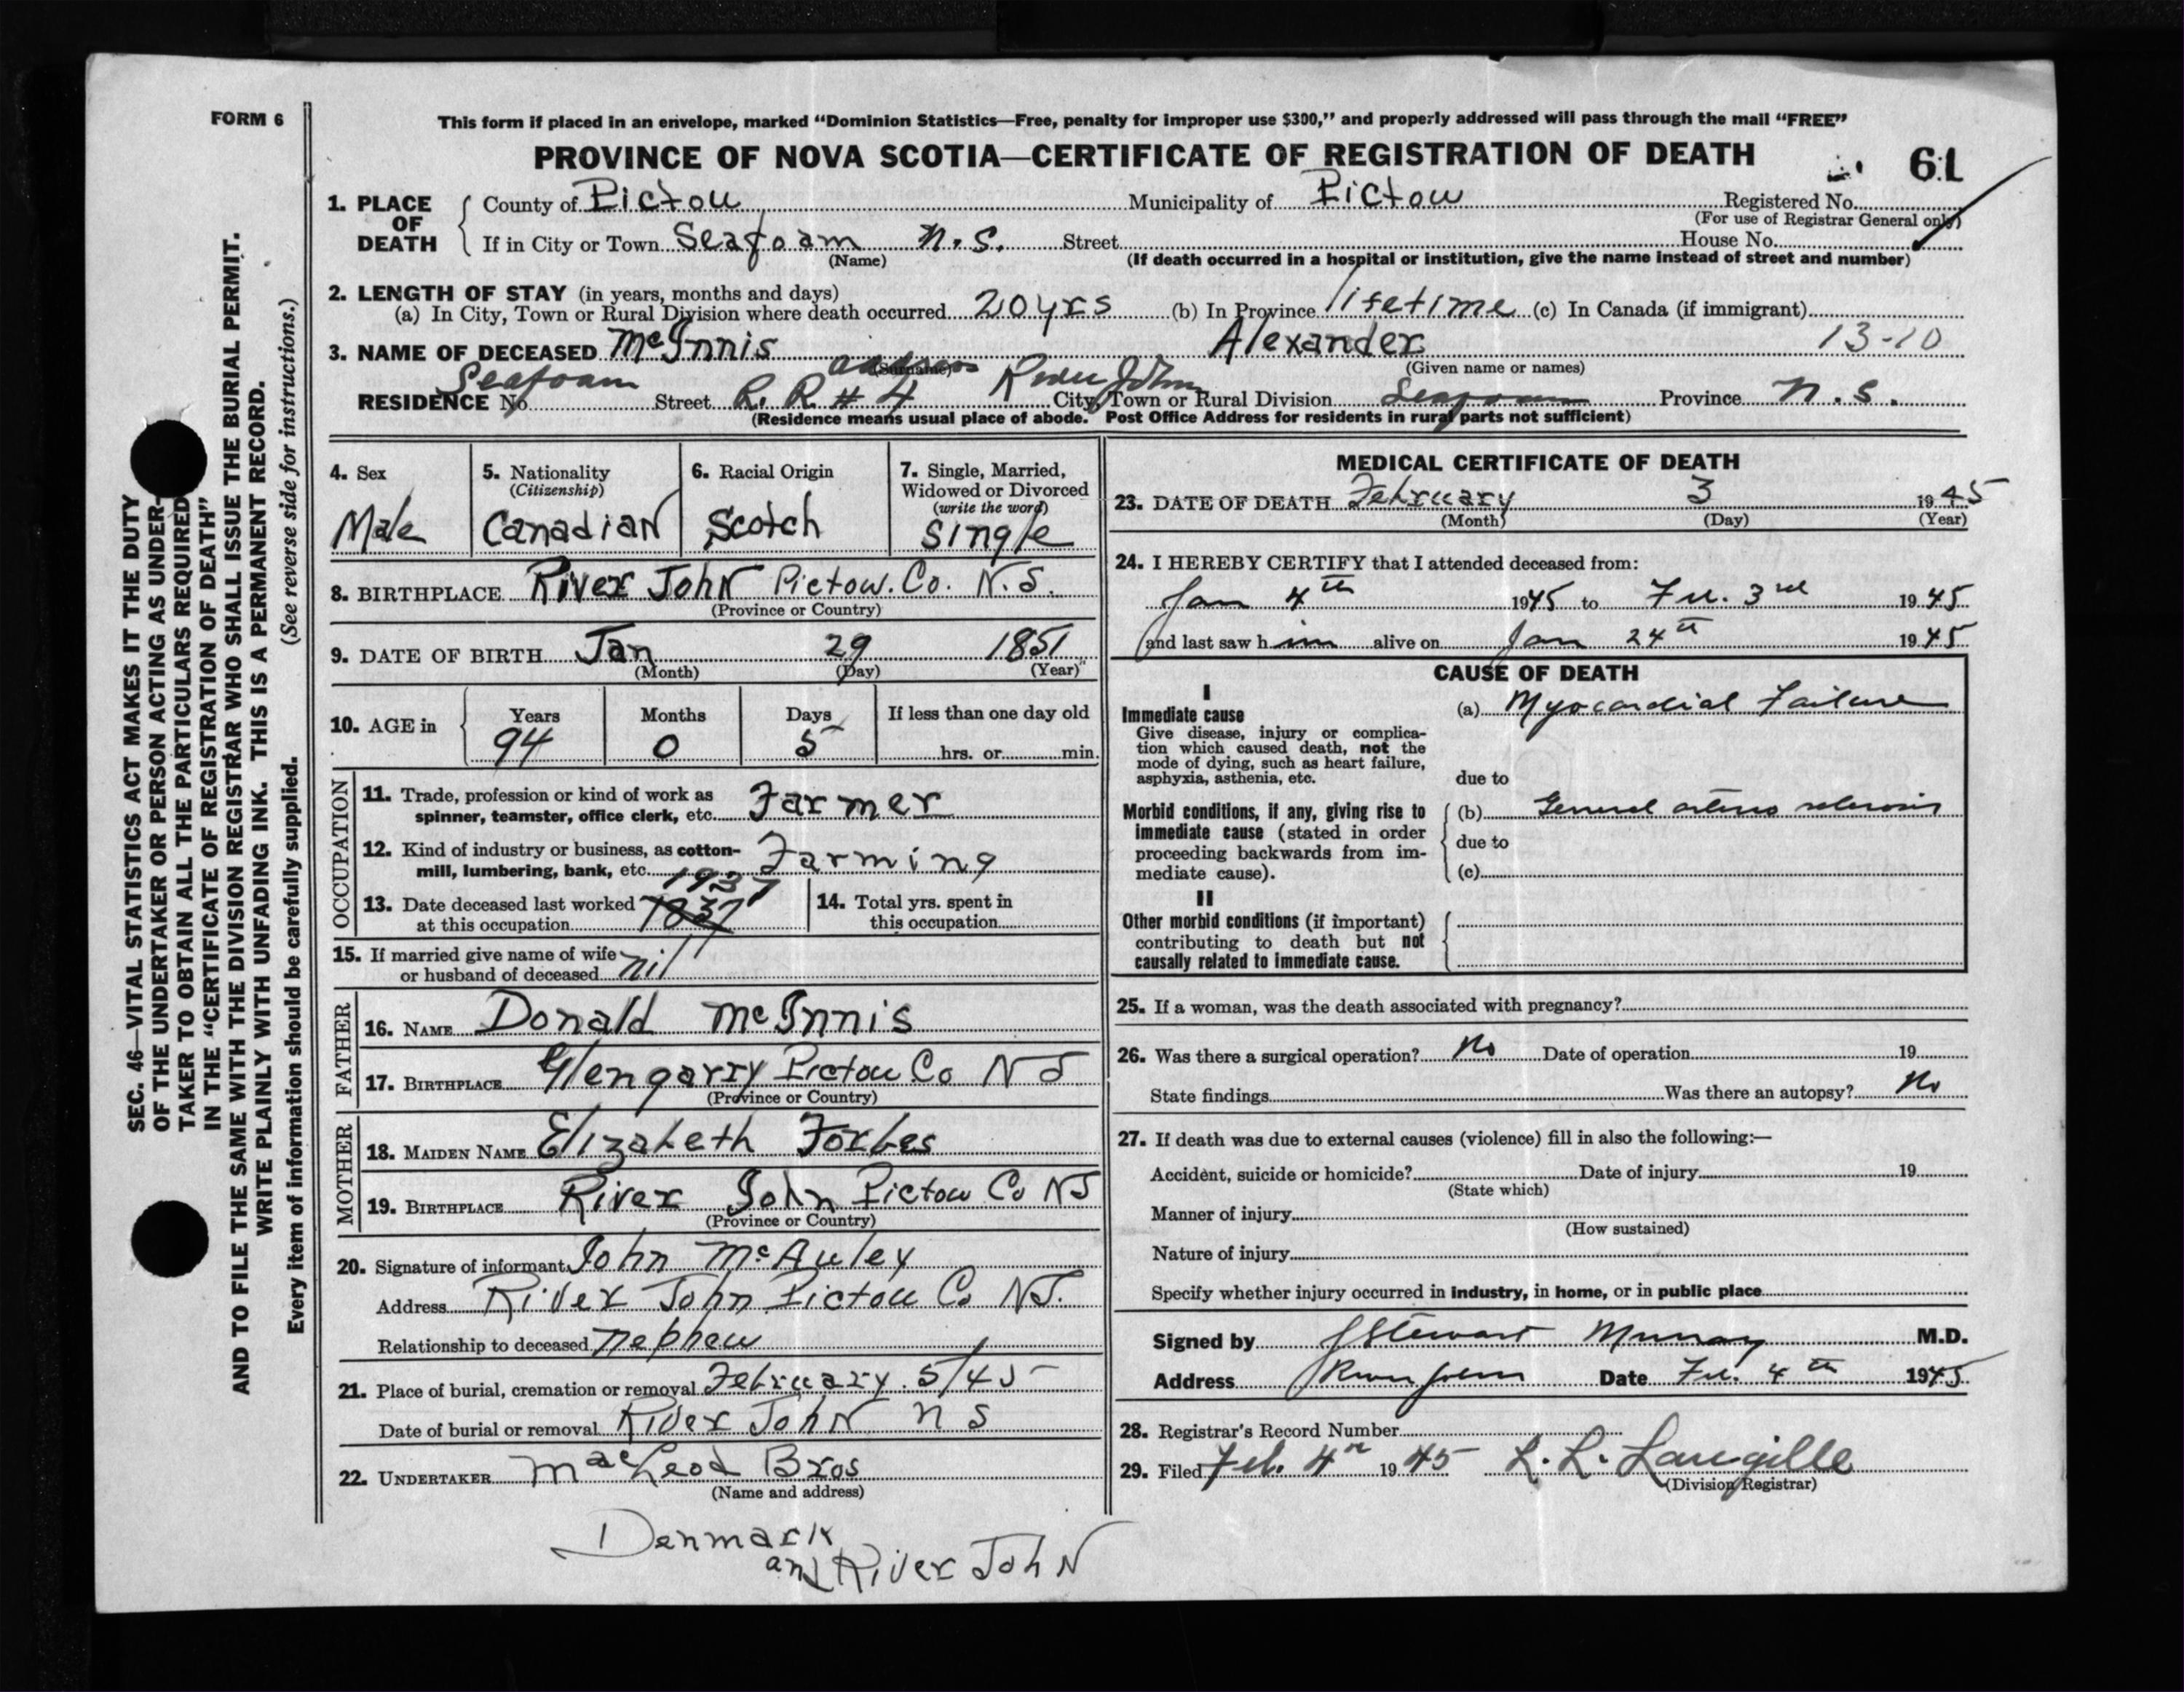 FORM 6
This form if placed in an envelope, marked "Dominion Statistics—Free, penalty for improper use $300," and properly addressed will pass through the mail "FREE"
PROVINCE OF NOVA SCOTIA—CERTIFICATE OF REGISTRATION OF DEATH
61
1. PLACE OF DEATH
County of Pictou Municipality of Pictou Registered No.
(For use of Registrar General only)
If in City or Town Seafoam N.S. Street House No.
(Name) (If death occurred in a hospital or institution, give the name instead of street and number)
2. LENGTH OF STAY (in years, months and days)
(a) In City, Town or Rural Division where death occurred 20 yrs (b) In Province lifetime (c) In Canada (if immigrant)
3. NAME OF DECEASED McInnis Alexander 13-10
(Surname) (Given name or names)
Seafoam address River John
RESIDENCE No. Street R. R # 4 City, Town or Rural Division Seafoam Province N.S.
(Residence means usual place of abode. Post Office Address for residents in rural parts not sufficient)
4. Sex
Male
5. Nationality
(Citizenship)
Canadian
6. Racial Origin
Scotch
7. Single, Married,
Widowed or Divorced
(write the word)
Single
8. BIRTHPLACE River John Pictow. Co. N.S.
(Province or Country)
9. DATE OF BIRTH Jan 29 1851
(Month) (Day) (Year)
10. AGE in Years Months Days If less than one day old
94 0 5 hrs. or min.
OCCUPATION
11. Trade, profession or kind of work as
spinner, teamster, office clerk, etc. Farmer
12. Kind of industry or business, as cotton-
mill, lumbering, bank, etc. Farming
1937
13. Date deceased last worked
at this occupation 1837
14. Total yrs. spent in
this occupation
15. If married give name of wife
or husband of deceased nil
FATHER
16. NAME Donald McInnis
17. BIRTHPLACE Glengarry Pictou Co NS
(Province or Country)
MOTHER
18. MAIDEN NAME Elizabeth Forbes
19. BIRTHPLACE River John Pictou Co NS
(Province or Country)
20. Signature of informant John McAuley
Address River John Pictou Co NS.
Relationship to deceased nephew
21. Place of burial, cremation or removal February. 5/45
Date of burial or removal River John N S
22. UNDERTAKER MacLeod Bros
(Name and address)
Denmark
and River John
MEDICAL CERTIFICATE OF DEATH
23. DATE OF DEATH February 3 1945
(Month) (Day) (Year)
24. I HEREBY CERTIFY that I attended deceased from:
Jan 4th 1945 to Fe. 3rd 1945
and last saw h im alive on Jan 24th 1945
CAUSE OF DEATH
I
Immediate cause
Give disease, injury or complica-
tion which caused death, not the
mode of dying, such as heart failure,
asphyxia, asthenia, etc.
(a) Myocardial Failure
due to
Morbid conditions, if any, giving rise to
immediate cause (stated in order
proceeding backwards from im-
mediate cause).
(b) General arterio sclerosis
due to
(c)
II
Other morbid conditions (if important)
contributing to death but not
causally related to immediate cause.
25. If a woman, was the death associated with pregnancy?
26. Was there a surgical operation? No Date of operation 19
State findings Was there an autopsy? No
27. If death was due to external causes (violence) fill in also the following:—
Accident, suicide or homicide? Date of injury 19
(State which)
Manner of injury
(How sustained)
Nature of injury
Specify whether injury occurred in industry, in home, or in public place
Signed by J Stewart Murray M.D.
Address River John Date Fe. 4th 1945
28. Registrar's Record Number
29. Filed Feb. 4th 1945 L. L. Langille
(Division Registrar)
SEC. 46—VITAL STATISTICS ACT MAKES IT THE DUTY
OF THE UNDERTAKER OR PERSON ACTING AS UNDER-
TAKER TO OBTAIN ALL THE PARTICULARS REQUIRED
IN THE "CERTIFICATE OF REGISTRATION OF DEATH"
AND TO FILE THE SAME WITH THE DIVISION REGISTRAR WHO SHALL ISSUE THE BURIAL PERMIT.
WRITE PLAINLY WITH UNFADING INK. THIS IS A PERMANENT RECORD.
Every item of information should be carefully supplied. (See reverse side for instructions.)